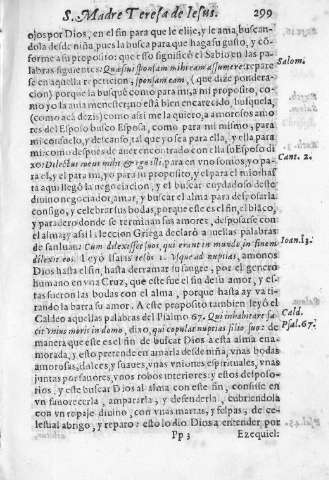 S. Madre Teresa de Iesus. 299
ojos por Dios, en el fin para que le elije, y le ama, buscan-
dola desde niña, pues la busca para que haga su gusto, y cō-
forme a su proposito: que esso significó el Sabio en las pa-
labras siguentes: Quæsiui sponsam mihi eam assumere: x
Salom.
se en aquella repeticion, sponsam eam, (que dize pondera-
cion) porque la busquè como para mi, a mi proposito, co-
mo yo la auia menester; no està bien encarecido, busquela,
(como acà dezis) como assi me la quiero, a amorosos amo-
res del Esposo busco Esposa, como para mi mismo, para
mi consuelo, y descanso, tal que yo sea para ella, y ella para
mi: como despues de auer encontrado con ella su Esposo di
xo: Dilectus meus mihi & ego illi, para en vno somos, yo pa-
Cant. 2.
ra el, y el para mi, yo para su proposito, y el para el mio: has
ta aqui llegò la negociacion, y el buscar cuydadoso deste
diuino negociador, amar, y buscar el alma para desposarla
consigo, y celebrar sus bodas, porque este es el fin, el blāco,
y paradero donde se terminan sus amores, desposarse con
el alma; y assi la leccion Griega declarò aquellas palabras
de san Iuan: Cum dilexisset suos, qui erant in mundo, in finem
Ioan. 13.
dilexit eos. Leyó Usque ad nuptias, amonos
Dios hasta el fin, hasta derramar su sangre, por el genero
humano en vna Cruz, que este fue el fin de su amor, y es-
tas fueron las bodas con el alma, porque hasta ay va ti-
rando la barra su amor. A este proposito tambien leyó el
Caldeo aquellas palabras del Psalmo 67. Qui inhabitare fa-
Cald.
cit vnius moris in domo, dixo, qui copulat nuptias filio suo: de
Psal. 67.
manera que este es el fin de buscar Dios a esta alma ena-
morada, y esto pretende en amarla desde niña, vnas bodas
amorosas, dulces, y suaues, vnas vniones espirituales, vnas
juntas por fauores, vnos robos interiores; y estos desposo-
rios, y este buscar Dios al alma con este fin, consiste en
vn fauorecerla, ampararla, y defenderla, cubriendola
con vn ropaje diuino, con vnas martas, y felpas, de ce-
lestial abrigo, y reparo: esto lo dio Dios a entender por
Pp 3 Ezequiel: